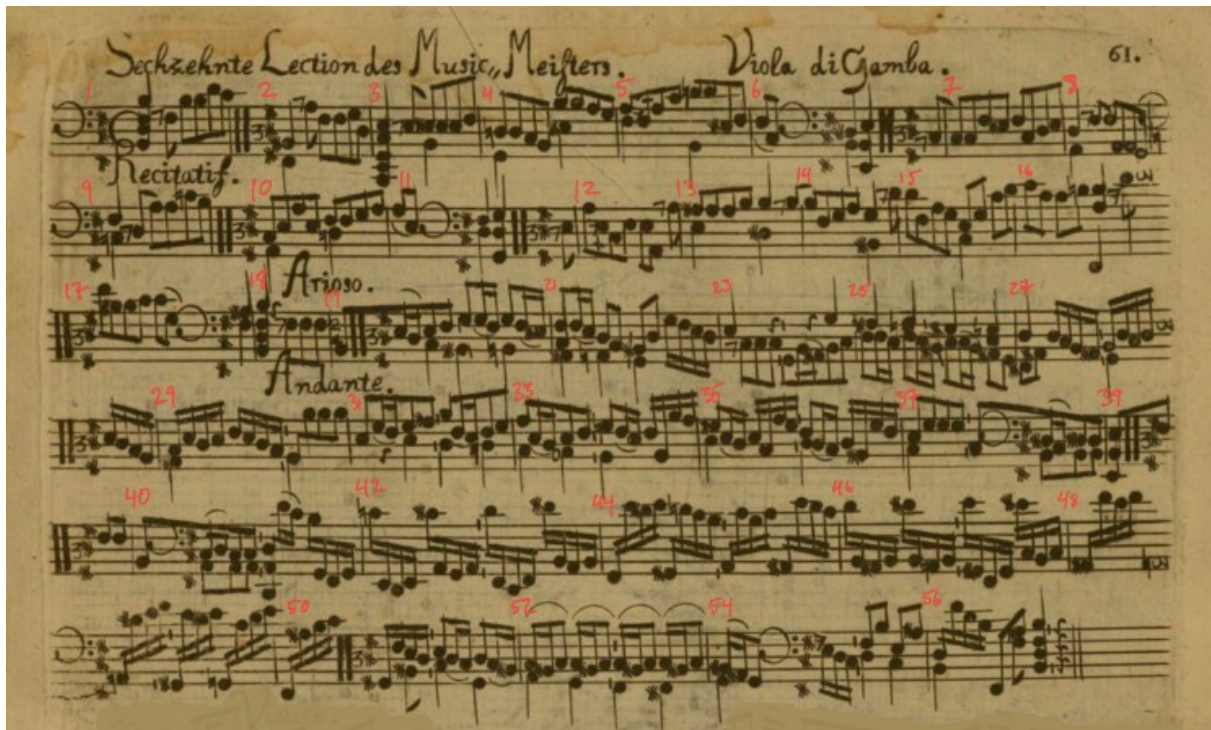 Sechzehnte Lection des Music,, Meiſters. Viola di Gamba. 61.
1 2 3 4 5 6 7 8
Recitatif.
9 10 11 12 13 14 15 16
Arioso.
17 18 19 21 23 25 27
Andante.
29 31 33 35 37 39
40 42 44 46 48
50 52 54 56